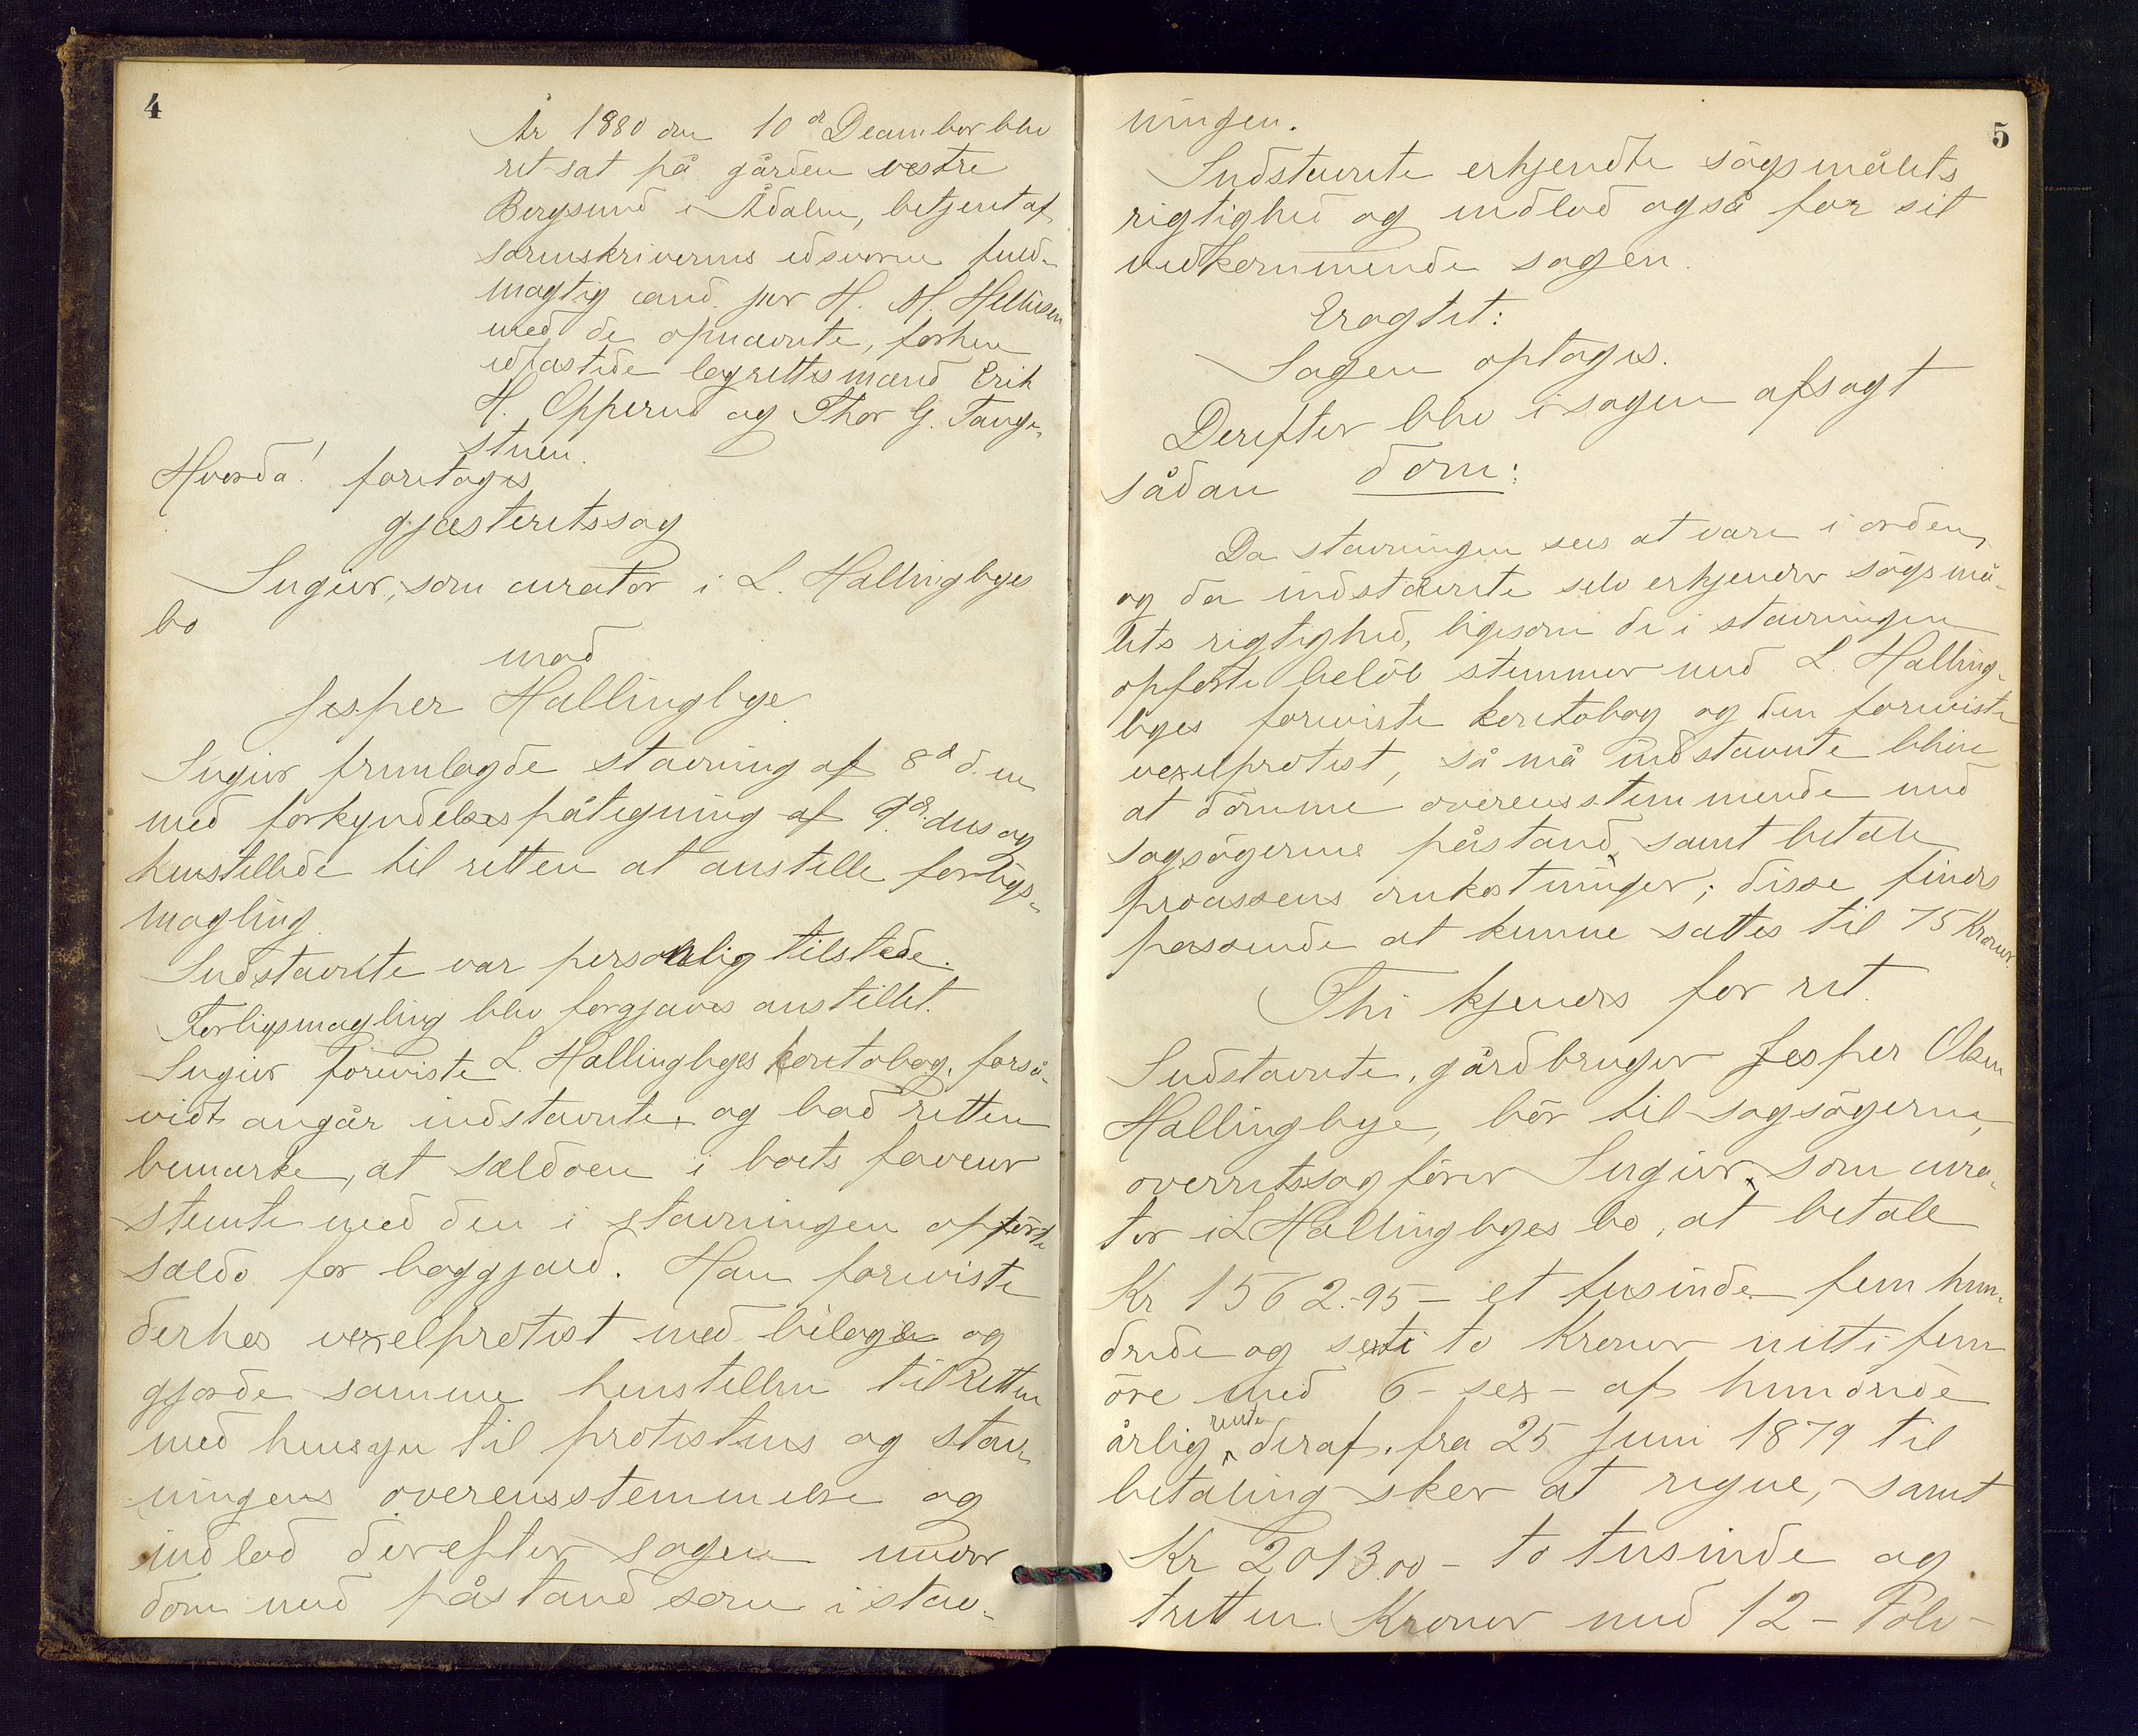 4
År 1880 den 10de December blev
ret sat på gården vestre
Bergsund i Ådalen, betjent af
sorenskriverens edsvorne fuld-
mægtig cand. jur H. M. Hellisen
med de opnævnte, forhen
edfæstede lagrettesmænd Erik
H. Opperud og Thor G. Tange-
stuen.
Hvorda! foretoges
gjæsteretssag
Ingier, som curator i L. Hallingbyes
bo
mod
Jesper Hallingbye
Ingier fremlagde stævning af 8de d. m
med forkyndelsespåtegning af 9de. dns og
henstillede til retten at anstille forligs-
mægling.
Indstævnte var personlig tilstede.
Forligsmægling blev forgjæves anstillet.
Ingier foreviste L. Hallingbyes kontobog, forså-
vidt angår indstævnte, og bad retten
bemærke, at saldoen i boets faveur
stemte med den i stævningen opførte
saldo for boggjæld. Han foreviste
derhos vexelprotest med bilage og
gjorde samme henstillen til Retten
med hensyn til protestens og stæv-
ningens overensstemmelse og
indlod derefter sagen under
dom med påstand som i stæv-
5
ningen.
Indstævnte erkjendte søgsmålets
rigtighed og indlod også for sit
vedkommende sagen.
Eragtet:
Sagen optages.
Derefter blev i sagen afsagt
sådan dom:
Da stævningen sees at være i orden,
og da indstævnte selv erkjender søgsmå-
lets rigtighed, ligesom de i stævningen
opførte beløb stemmer med L. Halling-
byes foreviste kontobog og den foreviste
vexelprotest, så må indstævnte blive
at dømme overensstemmende med
sagsøgerens påstand, samt betale
processens omkostninger; disse findes
passende at kunne sættes til 75 Kroner.
Thi kjendes for ret.
Indstævnte, gårdbruger Jesper Olsen
Hallingbye, bør til sagsøgerne,
overretssagfører Ingier, som cura-
tor i L Hallingbyes bo, at betale
Kr 1562.-95 – et tusinde fem hun-
drede og sexti to Kroner nitti fem
øre med 6 – sex – af hundrede
årlig rente deraf, fra 25 Juni 1879 til
betaling sker at regne, samt
Kr 2013.00 – to tusinde og
tretten Kroner med 12 – Tolv –